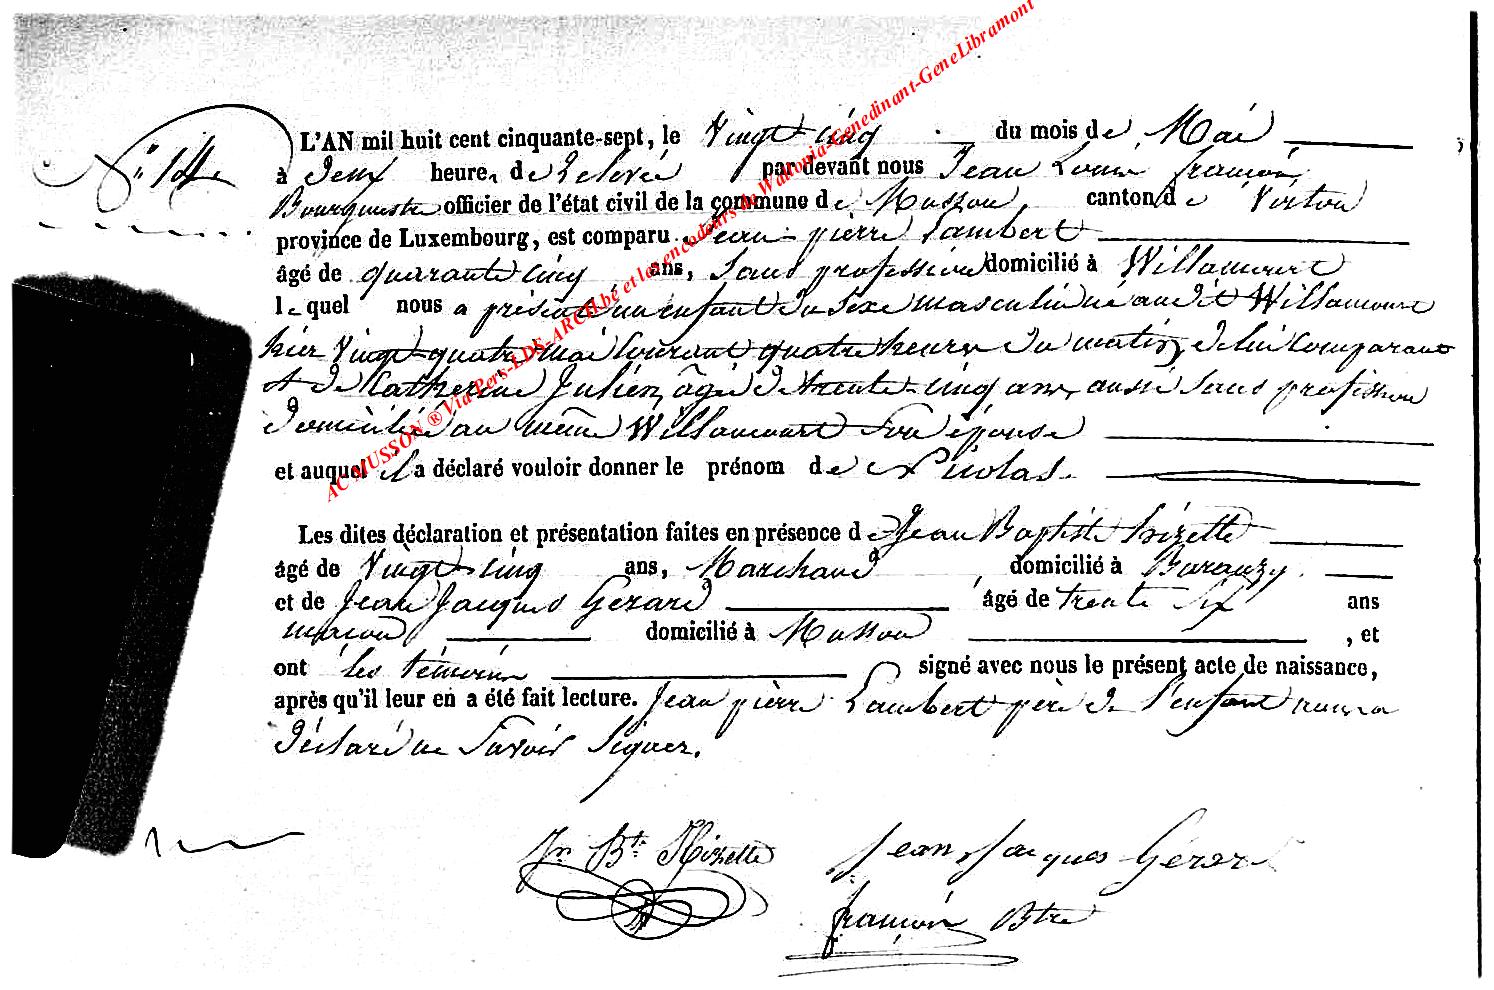 AC MUSSON ® Via Pers-LDS-ARCH.be et les encodeurs de Wallonia-Genedinant-GeneLibramont
N° 14
L'AN mil huit cent cinquante-sept, le Vingt cinq du mois de Mai
à Deux heures de Relevée par devant nous Jean Louis françois
Bourgmestre officier de l'état civil de la commune de Musson, canton de Virton
province de Luxembourg, est comparu Jean pierre Lambert
âgé de quarante cinq ans, Sans profession domicilié à Willancourt
lequel nous a présenté un enfant du Sexe masculin né au dit Willancourt
hier Vingt quatre mai Courant quatre heures du matin, de lui Comparant
et de Catherine Julien, âgée de trente cinq ans, aussi Sans profession
domiciliée au même Willancourt Son épouse
et auquel il a déclaré vouloir donner le prénom de Nicolas.
Les dites déclaration et présentation faites en présence de Jean Baptiste
âgé de Vingt cinq ans, Marchand domicilié à Baranzy
et de Jean Jacques Gérard âgé de trente Six ans
maçon domicilié à Musson , et
ont les témoins signé avec nous le présent acte de naissance,
après qu'il leur en a été fait lecture. Jean pierre Lambert père de l'enfant nous a
déclaré ne Savoir Signer.
Jn Bte Jean Jacques Gérard
françois Btre